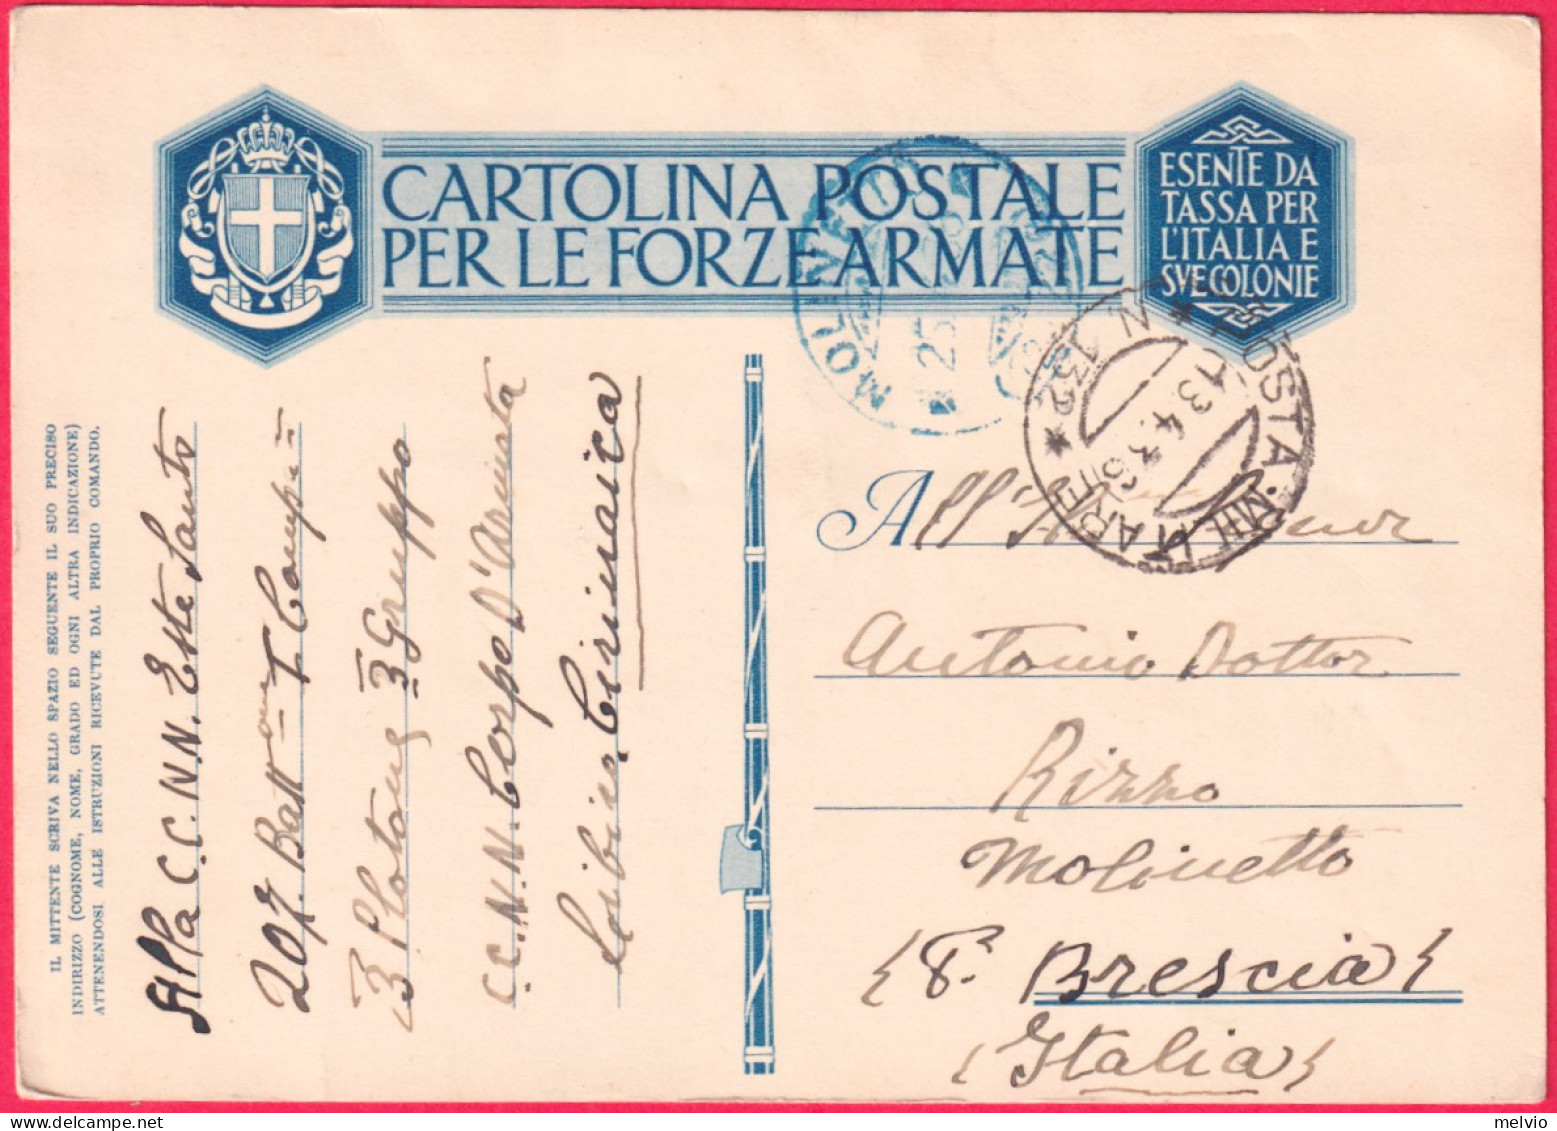 CARTOLINA POSTALE
PER LE FORZE ARMATE
ESENTE DA
TASSA PER
L'ITALIA E
SVE COLONIE
POSTA MILITARE
N. 132
13.4.36
25
IL MITTENTE SCRIVA NELLO SPAZIO SEGUENTE IL SUO PRECISO
INDIRIZZO (COGNOME, NOME, GRADO ED OGNI ALTRA INDICAZIONE)
ATTENENDOSI ALLE ISTRUZIONI RICEVUTE DAL PROPRIO COMANDO.
Alla C.C.N.N. Este Santo
207 Batt
Plotone 3 Gruppo
C.C.N.N. Corpo D'Armata
Cirinaica
All'
Antonio Dottor
Rizzo
Molinetto
{P. Brescia}
{Italia}
melvio